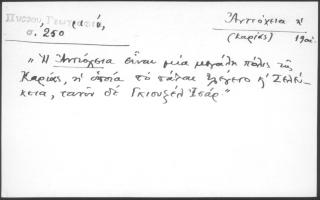 Πυξίου, Γεωγραφία,
σ. 250
Ἀντιόχεια ἡ
(Καρίας)
„Ἡ Ἀντιόχεια εἶναι μία μεγάλη πόλις τῆς
Καρίας, ἡ ὁποία τὸ πάλαι ἐλέγετο κ' Σελεύ-
κεια, τανῦν δέ Γκιουζέλ Ἰσάρ"